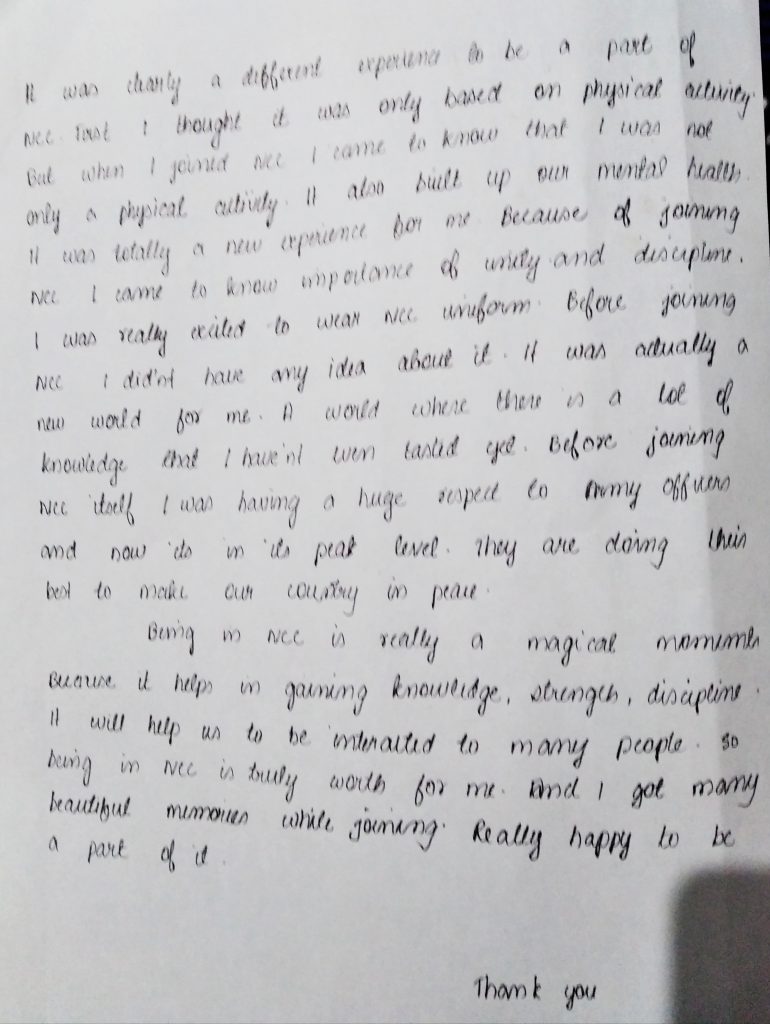 It was clearly a different experience to be a part of
NCC. First I thought it was only based on physical activity.
But when I joined NCC I came to know that I was not
only a physical activity. It also built up our mental health.
It was totally a new experience for me. Because of joining
NCC I came to know importance of unity and discipline.
I was really excited to wear NCC uniform. Before joining
NCC I did'nt have any idea about it. It was actually a
new world for me. A world where there is a lot of
knowledge that I have'nt even tasted yet. Before joining
NCC itself I was having a huge respect to Army officers
and now its in its peak level. They are doing their
best to make our country in peace.
Being in NCC is really a magical moments
Because it helps in gaining knowledge, strength, discipline.
It will help us to be interacted to many people. So
being in NCC is truly worth for me. And I got many
beautiful memories while joining. Really happy to be
a part of it.
Thank you